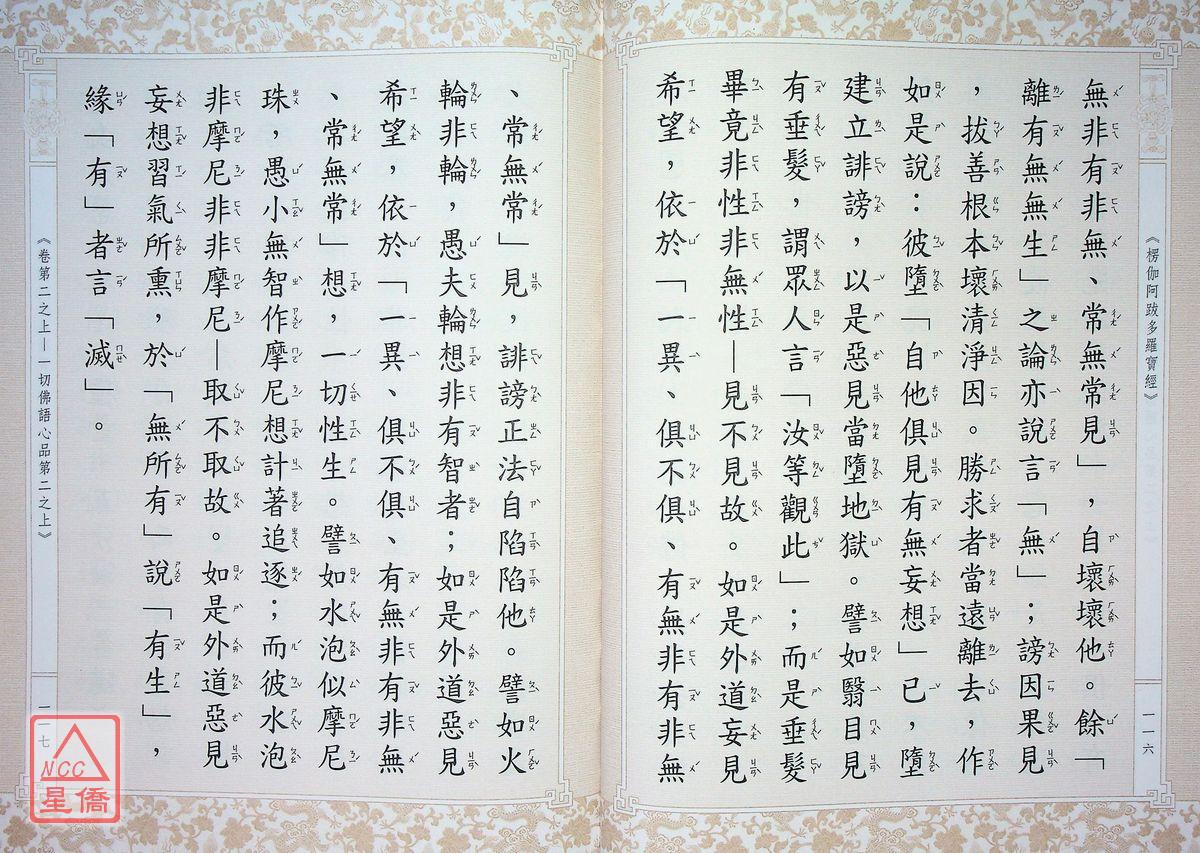 《楞伽阿跋多羅寶經》
一一六
無非有非無、常無常見」，自壞壞他。餘「
離有無無生」之論亦說言「無」；謗因果見
，拔善根本壞清淨因。勝求者當遠離去，作
如是說：彼墮「自他俱見有無妄想」已，墮
建立誹謗，以是惡見當墮地獄。譬如翳目見
有垂髮，謂眾人言「汝等觀此」；而是垂髮
畢竟非性非無性—見不見故。如是外道妄見
希望，依於「一異、俱不俱、有無非有非無
、常無常」見，誹謗正法自陷陷他。譬如火
輪非輪，愚夫輪想非有智者；如是外道惡見
希望，依於「一異、俱不俱、有無非有非無
、常無常」想，一切性生。譬如水泡似摩尼
珠，愚小無智作摩尼想計著追逐；而彼水泡
非摩尼非非摩尼—取不取故。如是外道惡見
妄想習氣所熏，於「無所有」說「有生」，
緣「有」者言「滅」。
《卷第二之上—一切佛語心品第二之上》
一一七
NCC
星僑